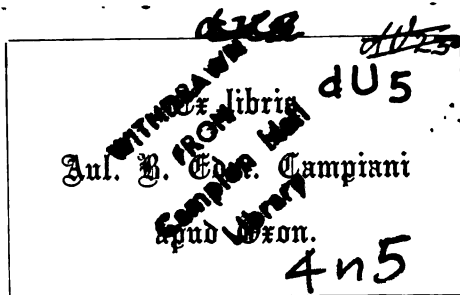 dU5
Ex libris
Aul. B. Edm. Campiani
apud Oxon.
WITHDRAWN
FROM
Campion Hall
Library
4n5